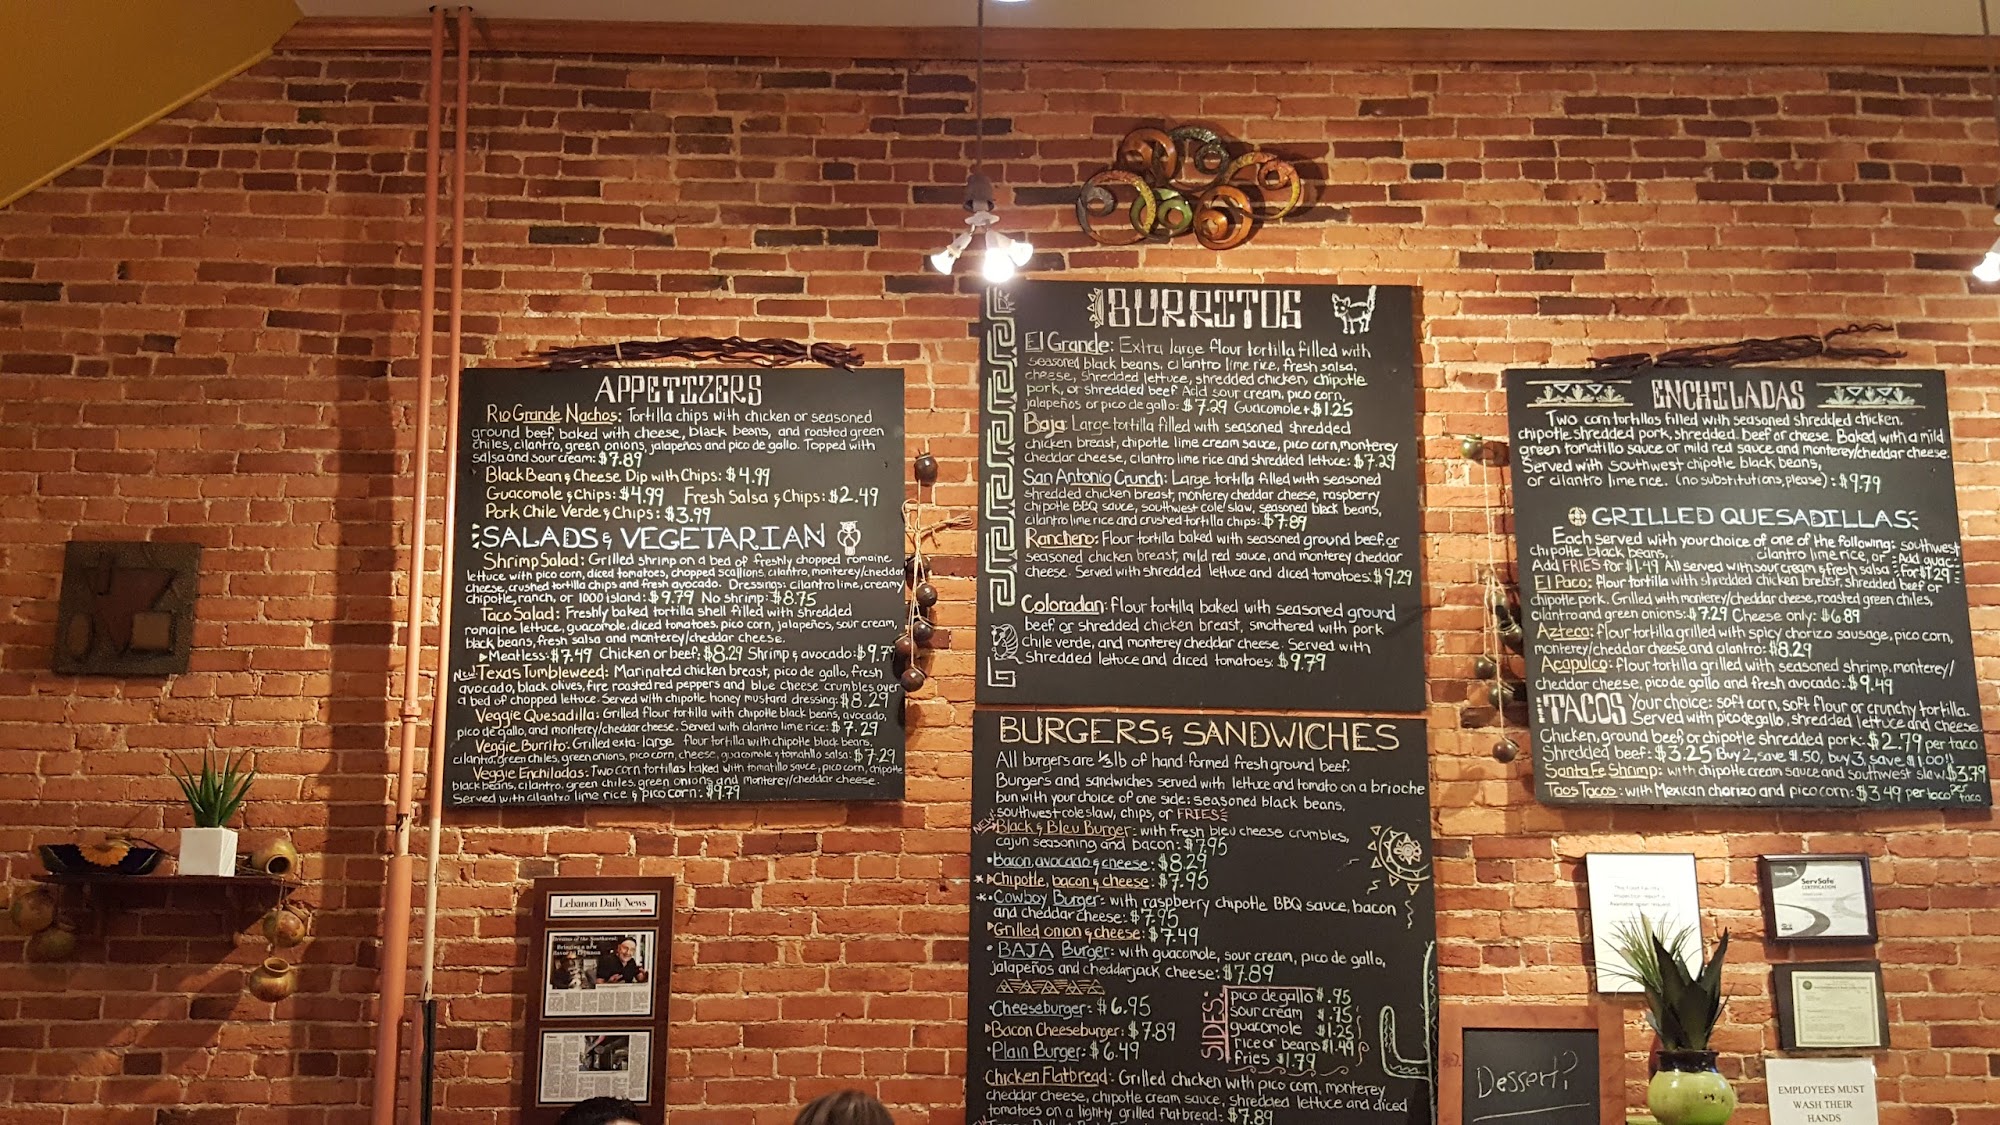 APPETIZERS
Rio Grande Nachos: Tortilla chips with chicken or seasoned
ground beef, baked with cheese, black beans, and roasted green
chiles, cilantro, green onions, jalapeños and pico de gallo. Topped with
salsa and sour cream: $7.89
Black Bean & Cheese Dip with Chips: $4.99
Guacamole & Chips: $4.99 Fresh Salsa & Chips: $2.49
Pork Chile Verde & Chips: $3.99
SALADS & VEGETARIAN
Shrimp Salad: Grilled shrimp on a bed of freshly chopped romaine
lettuce with pico corn, diced tomatoes, chopped scallions, cilantro, monterey/cheddar
cheese, crushed tortilla chips and fresh avocado. Dressings: cilantro lime, creamy
chipotle, ranch, or 1000 island: $9.79 No shrimp: $8.75
Taco Salad: Freshly baked tortilla shell filled with shredded
romaine lettuce, guacamole, diced tomatoes, pico corn, jalapeños, sour cream,
black beans, fresh salsa and monterey/cheddar cheese.
Meatless: $7.49 Chicken or beef: $8.29 Shrimp & avocado: $9.79
New! Texas Tumbleweed: Marinated chicken breast, pico de gallo, fresh
avocado, black olives, fire roasted red peppers and blue cheese crumbles over
a bed of chopped lettuce. Served with chipotle honey mustard dressing: $8.29
Veggie Quesadilla: Grilled flour tortilla with chipotle black beans, avocado,
pico de gallo, and monterey/cheddar cheese. Served with cilantro lime rice: $7.29
Veggie Burrito: Grilled exta-large flour tortilla with chipotle black beans,
cilantro, green chiles, green onions, pico corn, cheese, guacamole & tomatillo salsa: $7.29
Veggie Enchiladas: Two corn tortillas baked with tomatillo sauce, pico corn, chipotle
black beans, cilantro, green chiles, green onions and monterey/cheddar cheese.
Served with cilantro lime rice & pico corn: $9.79
BURRITOS
El Grande: Extra large flour tortilla filled with
seasoned black beans, cilantro lime rice, fresh salsa,
cheese, shredded lettuce, shredded chicken, chipotle
pork, or shredded beef. Add sour cream, pico corn,
jalapeños or pico de gallo: $7.29 Guacamole + $1.25
Baja: Large tortilla filled with seasoned shredded
chicken breast, chipotle lime cream sauce, pico corn, monterey
cheddar cheese, cilantro lime rice and shredded lettuce: $7.29
San Antonio Crunch: Large tortilla filled with seasoned
shredded chicken breast, monterey cheddar cheese, raspberry
chipotle BBQ sauce, southwest cole slaw, seasoned black beans,
cilantro lime rice and crushed tortilla chips: $7.89
Ranchero: Flour tortilla baked with seasoned ground beef or
seasoned chicken breast, mild red sauce, and monterey cheddar
cheese. Served with shredded lettuce and diced tomatoes: $9.29
Coloradan: flour tortilla baked with seasoned ground
beef or shredded chicken breast, smothered with pork
chile verde, and monterey cheddar cheese. Served with
shredded lettuce and diced tomatoes: $9.79
BURGERS & SANDWICHES
All burgers are 1/3 lb of hand-formed fresh ground beef.
Burgers and sandwiches served with lettuce and tomato on a brioche
bun with your choice of one side: seasoned black beans,
southwest coleslaw, chips, or FRIES
NEW Black & Bleu Burger: with fresh bleu cheese crumbles,
cajun seasoning and bacon: $7.95
Bacon, avocado & cheese: $8.29
Chipotle, bacon & cheese: $7.95
Cowboy Burger: with raspberry chipotle BBQ sauce, bacon
and cheddar cheese: $7.95
Grilled onion & cheese: $7.49
BAJA Burger: with guacamole, sour cream, pico de gallo,
jalapeños and cheddarjack cheese: $7.89
Cheeseburger: $6.95
Bacon Cheeseburger: $7.89
Plain Burger: $6.49
SIDES:
pico de gallo $.95
sour cream $.75
guacamole $1.25
rice or beans $1.49
fries $1.79
Chicken Flatbread: Grilled chicken with pico corn, monterey
cheddar cheese, chipotle cream sauce, shredded lettuce and diced
tomatoes on a lightly grilled flatbread: $7.89
ENCHILADAS
Two corn tortillas filled with seasoned shredded chicken,
chipotle shredded pork, shredded beef or cheese. Baked with a mild
green tomatillo sauce or mild red sauce and monterey/cheddar cheese.
Served with southwest chipotle black beans,
or cilantro lime rice. (no substitutions, please): $9.79
GRILLED QUESADILLAS
Each served with your choice of one of the following: southwest
chipotle black beans, cilantro lime rice, or
Add FRIES for $1.49 All served with sour cream & fresh salsa Add guac for $1.29
El Paco: flour tortilla with shredded chicken breast, shredded beef or
chipotle pork. Grilled with monterey/cheddar cheese, roasted green chiles,
cilantro and green onions: $7.29 Cheese only: $6.89
Azteco: flour tortilla grilled with spicy chorizo sausage, pico corn,
monterey/cheddar cheese and cilantro: $8.29
Acapulco: flour tortilla grilled with seasoned shrimp, monterey/
cheddar cheese, pico de gallo and fresh avocado: $9.49
TACOS Your choice: soft corn, soft flour or crunchy tortilla.
Served with pico de gallo, shredded lettuce and cheese
Chicken, ground beef, or chipotle shredded pork: $2.79 per taco
Shredded beef: $3.25 Buy 2, save $.50, buy 3, save $1.00!!
Santa Fe Shrimp: with chipotle cream sauce and southwest slaw $3.79
Taos Tacos: with Mexican chorizo and pico corn: $3.49 per taco per taco
Lebanon Daily News
Dreams of the Southwest,
Bringing a new
flavor to Lebanon
ServSafe
CERTIFICATION
Dessert?
EMPLOYEES MUST
WASH THEIR
HANDS